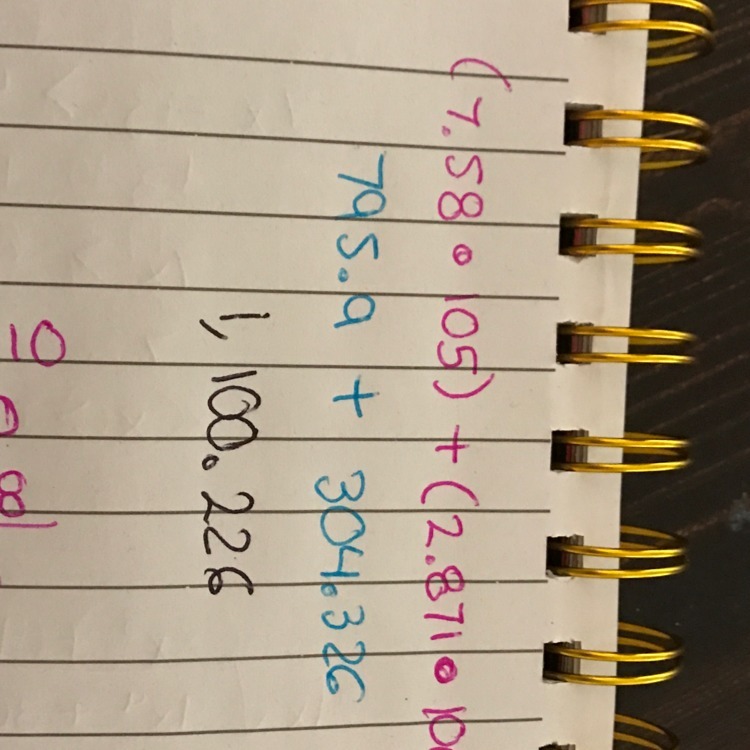 (7.58 • 105) + (2.871 • 10
795.9 + 304.326
1,100.226
10